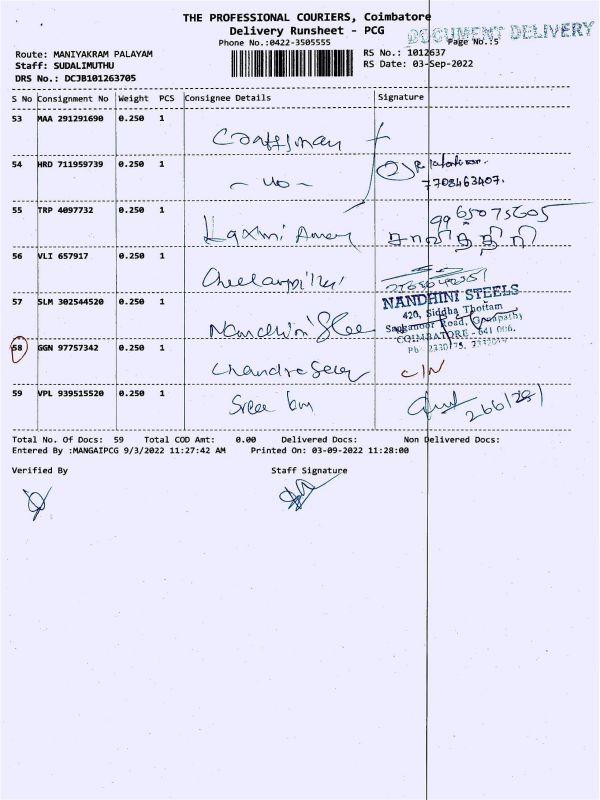 THE PROFESSIONAL COURIERS, Coimbatore
Delivery Runsheet - PCG
DOCUMENT DELIVERY
Phone No.:0422-3505555
Page No.:5
Route: MANIYAKRAM PALAYAM
RS No.: 1012637
Staff: SUDALIMUTHU
RS Date: 03-Sep-2022
DRS No.: DCJB101263705
S No Consignment No Weight PCS Consignee Details Signature
53 MAA 291291690 0.250 1
Craftsman
54 HRD 711959739 0.250 1
- uo -
7708463407.
55 TRP 4097732 0.250 1
9965075605
Laxmi
56 VLI 657917 0.250 1
57 SLM 302544520 0.250 1
Nandhini Stee
NANDHINI STEELS
420, Siddha Thottam
Sanganoor Road, Ganapathy
COIMBATORE - 641 006.
58 GGN 97757342 0.250 1
Chandra
C/N
59 VPL 939515520 0.250 1
Sree
266/281
Total No. Of Docs: 59 Total COD Amt: 0.00 Delivered Docs: Non Delivered Docs:
Entered By :MANGAIPCG 9/3/2022 11:27:42 AM Printed On: 03-09-2022 11:28:00
Verified By Staff Signature